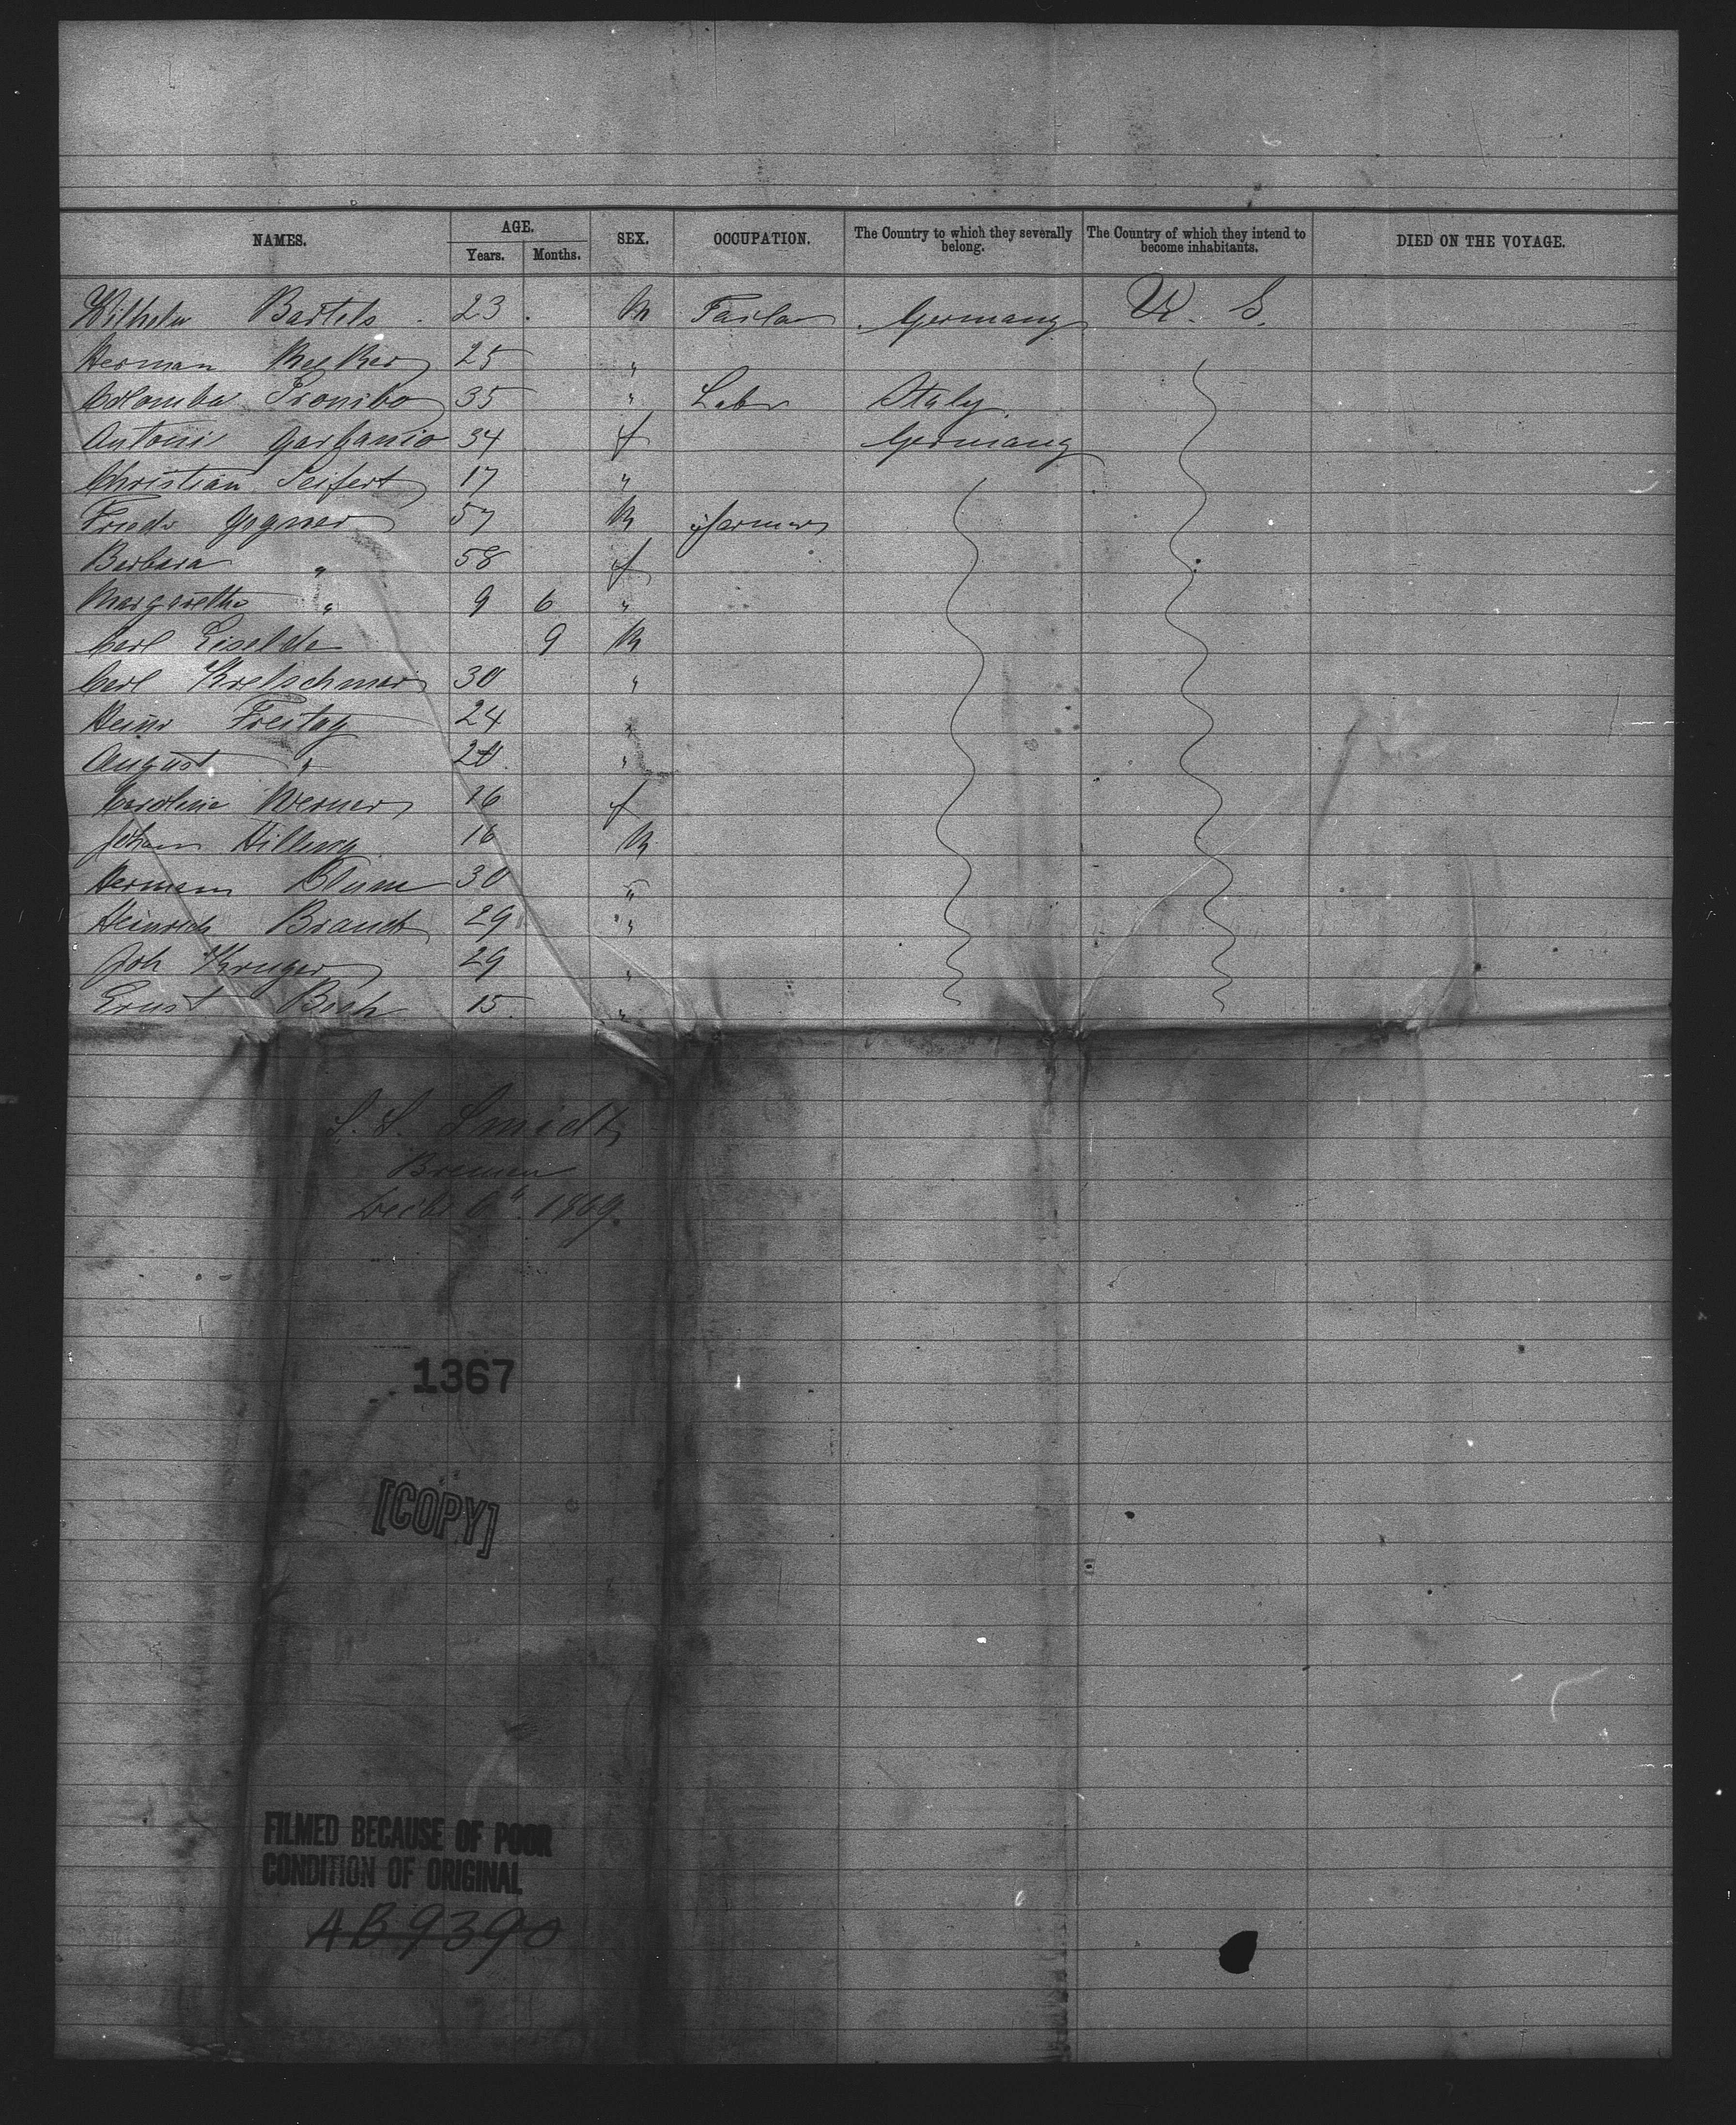 NAMES. AGE. Years. Months. SEX. OCCUPATION. The Country to which they severally belong. The Country of which they intend to become inhabitants. DIED ON THE VOYAGE.
Wilhelm Bartels 23 M Germany U. S.
Herman 25 "
Colomba 35 " Labr Italy
Antoni 34 f Germany
Christian Seifert 17 "
Friedr 57 M farmer
Barbara " 58 f
Margarethe " 9 6 "
Carl 9 M
Carl Kretschmer 30 "
Heinr Freitag 24 "
August " "
Caroline Werner 16 f
Johann 16 M
Hermann Blume 30 "
Heinrich Brandt 29 "
Joh Kruger 29 "
Ernst 15 "
S. S. Smidt,
Bremen
Decbr 6th 1869.
1367
[COPY]
FILMED BECAUSE OF POOR
CONDITION OF ORIGINAL
AB9390